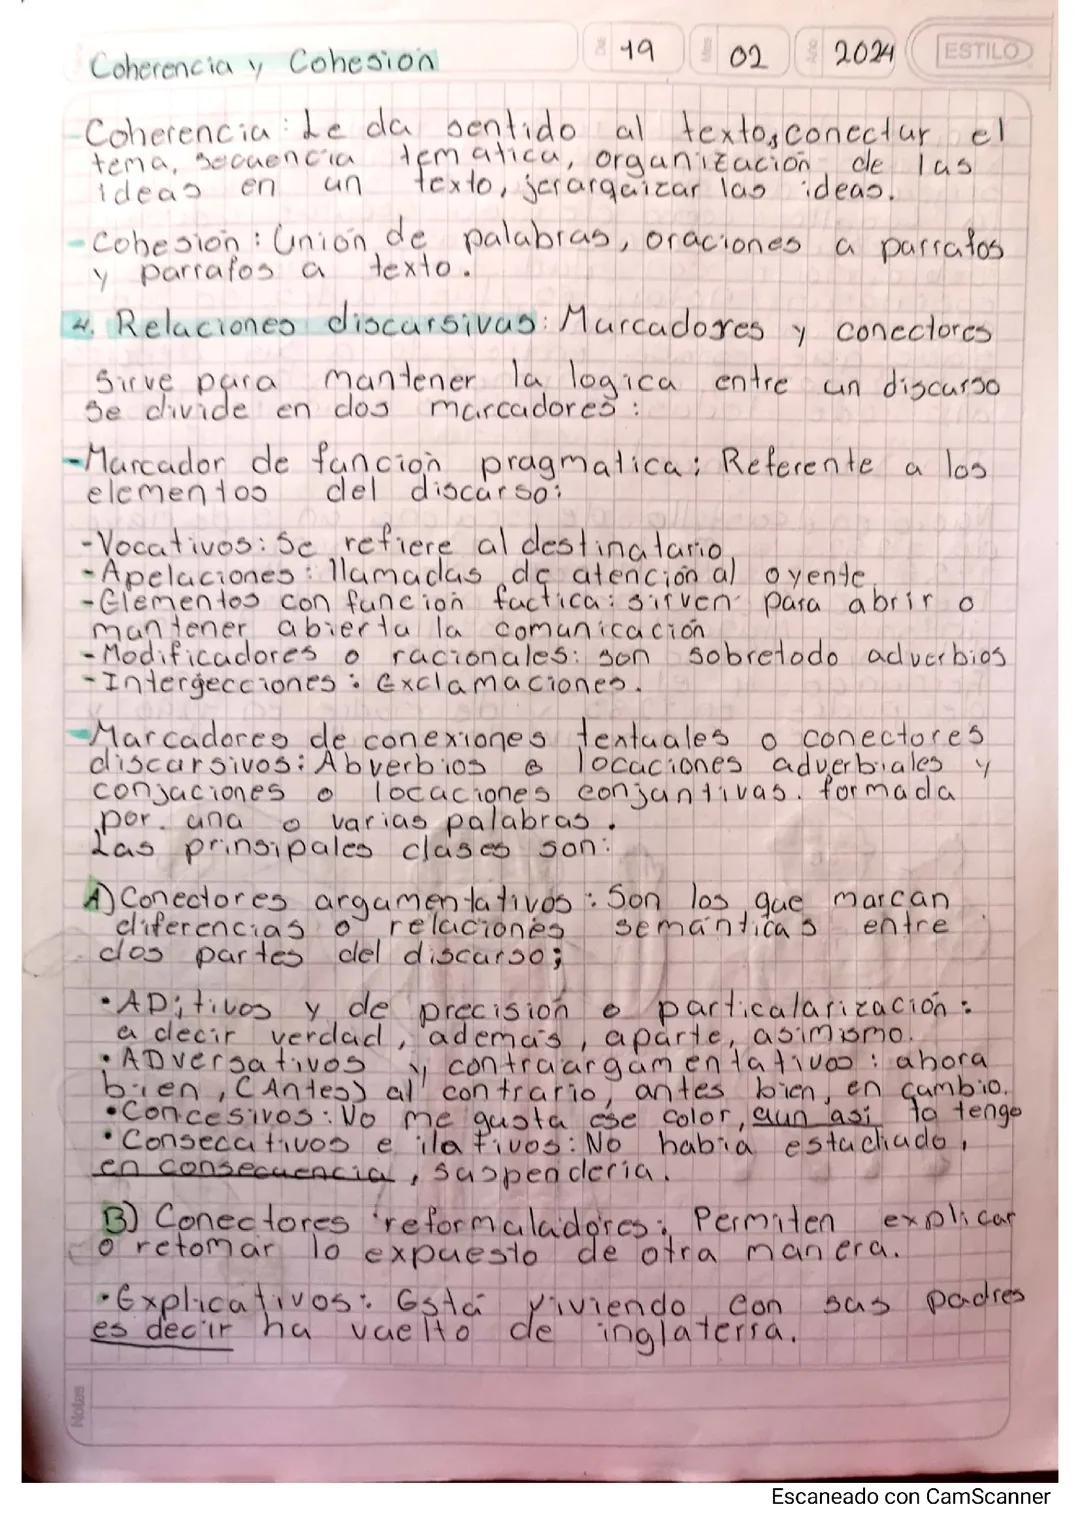 De 19 Mes 02 Año 2024 ESTILO
Coherencia y Cohesión
-Coherencia: Le da sentido al texto, conectar el
tema, secuencia tematica, organización de las
ideas en un texto, jerarquizar las ideas.
-Cohesión: Unión de palabras, oraciones a parrafos
y parrafos a texto.
4. Relaciones discursivas: Marcadores y conectores
Sirve para mantener la logica entre un discurso
Se divide en dos marcadores:
-Marcador de función pragmatica: Referente a los
elementos del discurso:
-Vocativos: Se refiere al destinatario
-Apelaciones: llamadas de atención al oyente
-Elementos con función factica: sirven para abrir o
mantener abierta la comunicación
-Modificadores o racionales: son sobretodo adverbios
-Intergecciones: Exclamaciones.
-Marcadores de conexiones textuales o conectores
discursivos: Abverbios o locaciones adverbiales y
conjuciones o locaciones conjuntivas. formada
por una o varias palabras.
Las prinsipales clases son:
A) Conectores argumentativos: Son los que marcan
diferencias o relaciones semánticas entre
dos partes del discurso;
•ADitivos y de precisión o particularización:
a decir verdad, además, aparte, asimismo.
•ADversativos y contraargumentativos: ahora
bien, (Antes) al contrario, antes bien, en cambio.
•Concesivos: No me gusta ese color, aun así lo tengo
•Consecutivos e ilativos: No había estudiado,
en consecuencia, suspendería.
B) Conectores reformuladores: Permiten explicar
o retomar lo expuesto de otra manera.
•Explicativos: Está viviendo con sus padres
es decir ha vuelto de inglaterra.
Notas
Escaneado con CamScanner